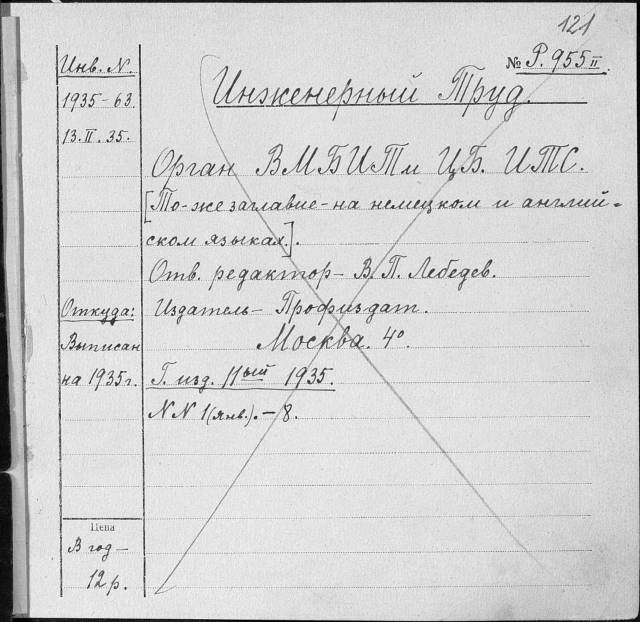 121
№ Р. 955 II.
Инв. N.
1935-63.
13. II. 35.
Инженерный Труд.
Орган ВМБИТ и ЦБ. ИТС.
[То-же заглавие - на немецком и англий=
ском языках.].
Отв. редактор - В. П. Лебедев.
Откуда:
Выписан
на 1935 г.
Издатель - Профиздат.
Москва. 4°.
Г. изд. 11ый 1935.
NN 1 (янв.). - 8.
Цена
В год -
12 р.